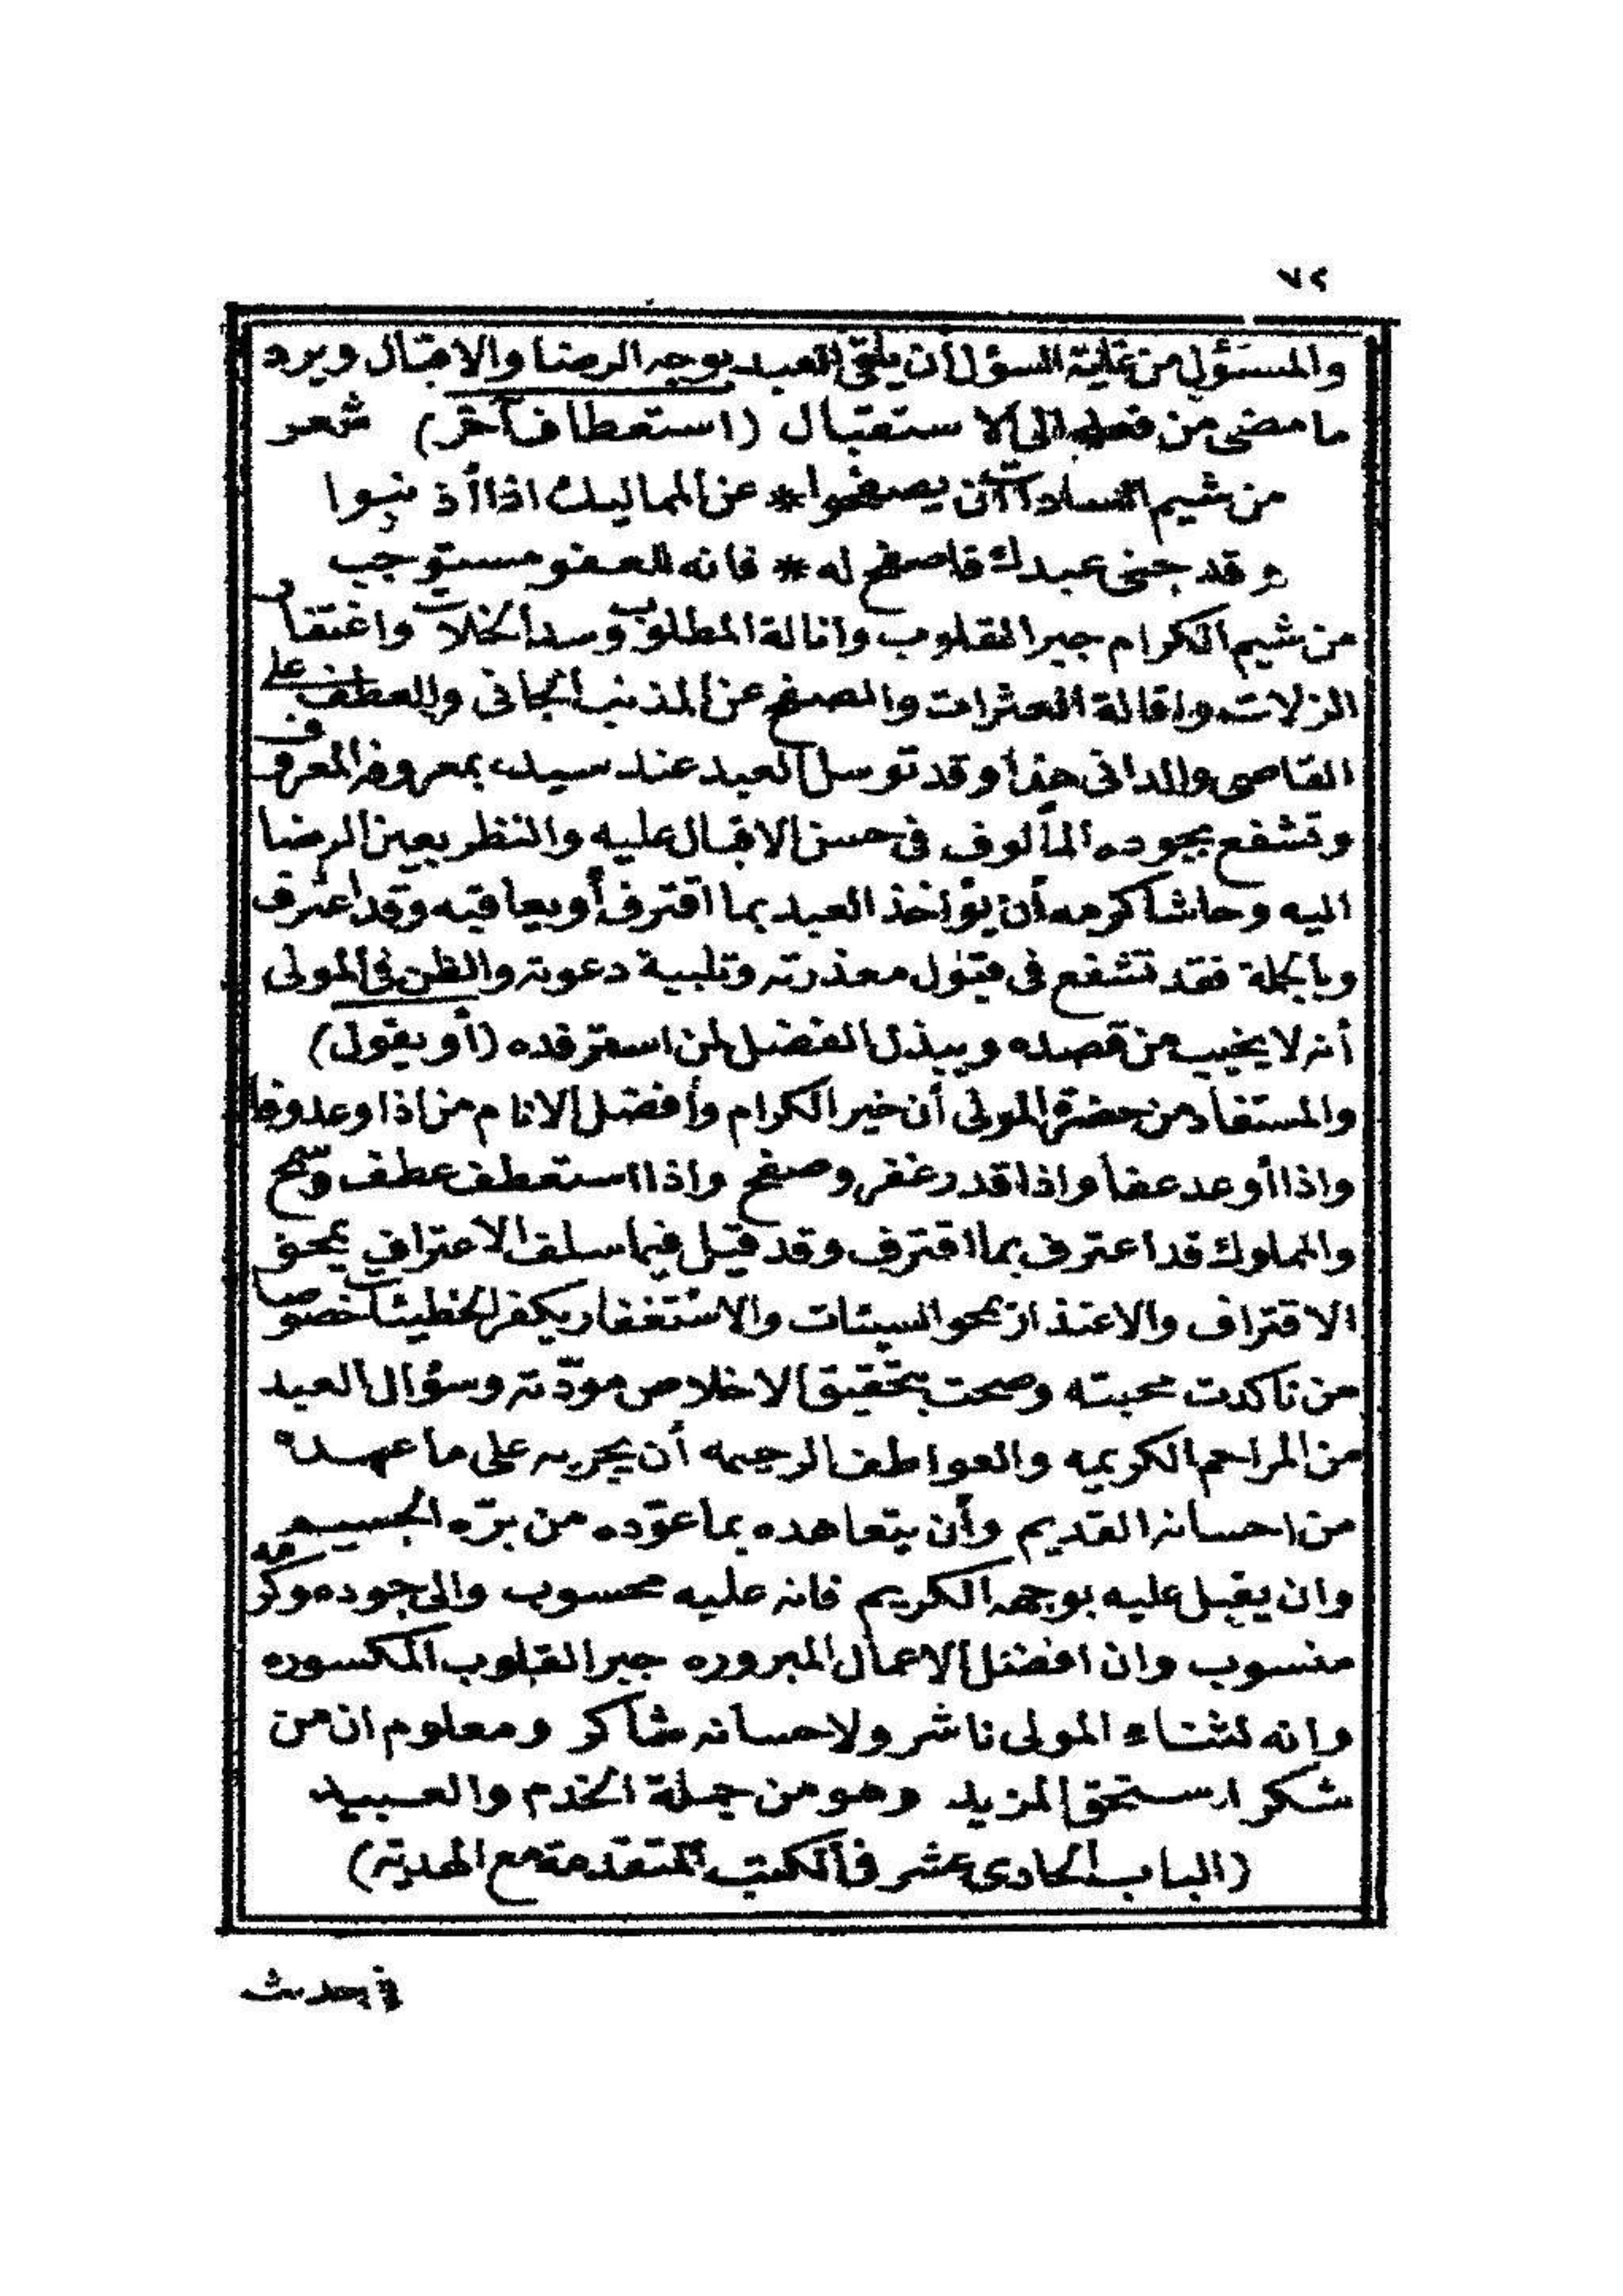 ٧٢
والمسؤل من غاية السؤل أن يلقى العبد بوجه الرضا والاقبال ويرد
ما مضى من فعله الى الاستقبال (استعطاف آخر) شعر
من شيم السادات أن يصفحوا * عن المماليك اذا أذنبوا
وقد جنى عبدك فاصفح له * فانه للعفو مستوجب
من شيم الكرام جبر القلوب وانالة المطلوب وسد الخلات واغتفار
الزلات واقالة العثرات والصفح عن المذنب الجانى والعطف على
القاصى والدانى هذا وقد توسل العبد عند سيده بمعروفه المعروف
وتشفع بجوده المألوف فى حسن الاقبال عليه والنظر بعين الرضا
اليه وحاشا كرمه أن يؤاخذ العبد بما اقترف أو يعاقبه وقد اعترف
وبالجملة فقد تشفع فى قبول معذرته وتلبية دعوته والظن فى المولى
أنه لا يخيب من قصده ويبذل الفضل لمن استرفده (أو يقول)
والمستفاد من حضرة المولى أن خير الكرام وأفضل الانام من اذا وعد وفا
واذا أوعد عفا واذا قدر غفر وصفح واذا استعطف عطف وسمح
والمملوك قد اعترف بما اقترف وقد قيل فيما سلف الاعتراف يمحق
الاقتراف والاعتذار يمحو السيئات والاستغفار يكفر الخطيئات خصوصا
من تاكدت محبته وصحت بتحقيق الاخلاص مودّته وسؤال العبد
من المراحم الكريمه والعواطف الرحيمه أن يجريه على ما عهده
من احسانه القديم وأن يتعاهده بما عوّده من برّه الجسيم
وان يقبل عليه بوجهه الكريم فانه عليه محسوب والى جوده وكرمه
منسوب وان افضل الاعمال المبروره جبر القلوب المكسوره
وانه لثناء المولى ناشر ولاحسانه شاكر ومعلوم ان من
شكر استحق المزيد وهو من جملة الخدم والعبيد
(الباب الحادى عشر فى الكتب المتقدمة مع الهدية)